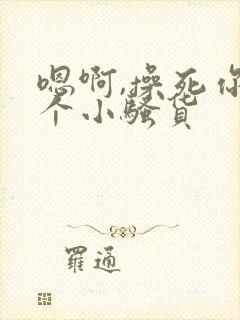 嗯啊,操死你
个小骚货
羅通